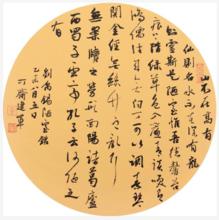 山不在高有
仙則名水不在深有龍
則靈斯是陋室惟吾德馨苔
痕上階綠草色入簾青談笑有
鴻儒往来無白丁可以調素琴
閱金經無絲竹之亂耳
無案牘之勞形南陽諸葛廬
西蜀子雲亭孔子云何陋之
有
劉禹錫陋室銘
八月五日
建軍